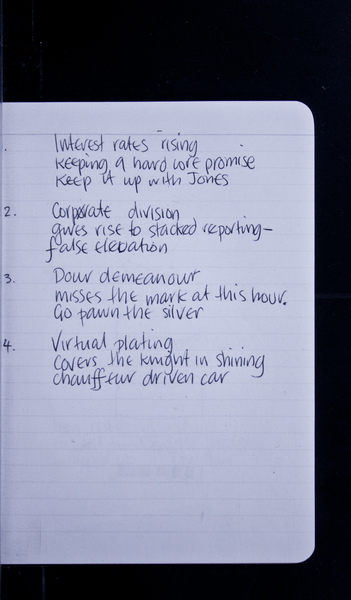 1. Interest rates rising
keeping a hard core promise
keep it up with Jones
2. Corporate division
gives rise to stacked reporting—
false elevation
3. Dour demeanour
misses the mark at this hour.
Go pawn the silver
4. Virtual plating
Covers the knight in shining
chauffeur driven car